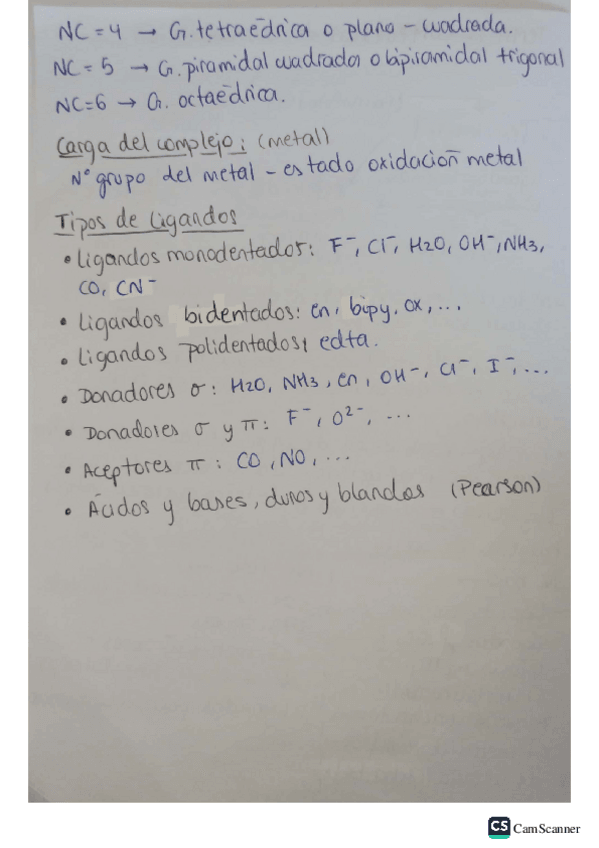 NC = 4 → G. tetraédrica o plano - cuadrada.
NC = 5 → G. piramidal cuadrada o bipiramidal trigonal
NC=6 → G. octaédrica.
Carga del complejo: (metal)
Nº grupo del metal - estado oxidación metal
Tipos de Ligandos
• Ligandos monodentados: F⁻, Cl⁻, H2O, OH⁻, NH3,
CO, CN⁻
• Ligandos bidentados: en, bipy, ox, ...
• Ligandos polidentados, edta.
• Donadores σ: H2O, NH3, en, OH⁻, Cl⁻, I⁻, ...
• Donadores σ y π: F⁻, O²⁻, ...
• Aceptores π: CO, NO, ...
• Ácidos y bases, duros y blandos (Pearson)
CS CamScanner